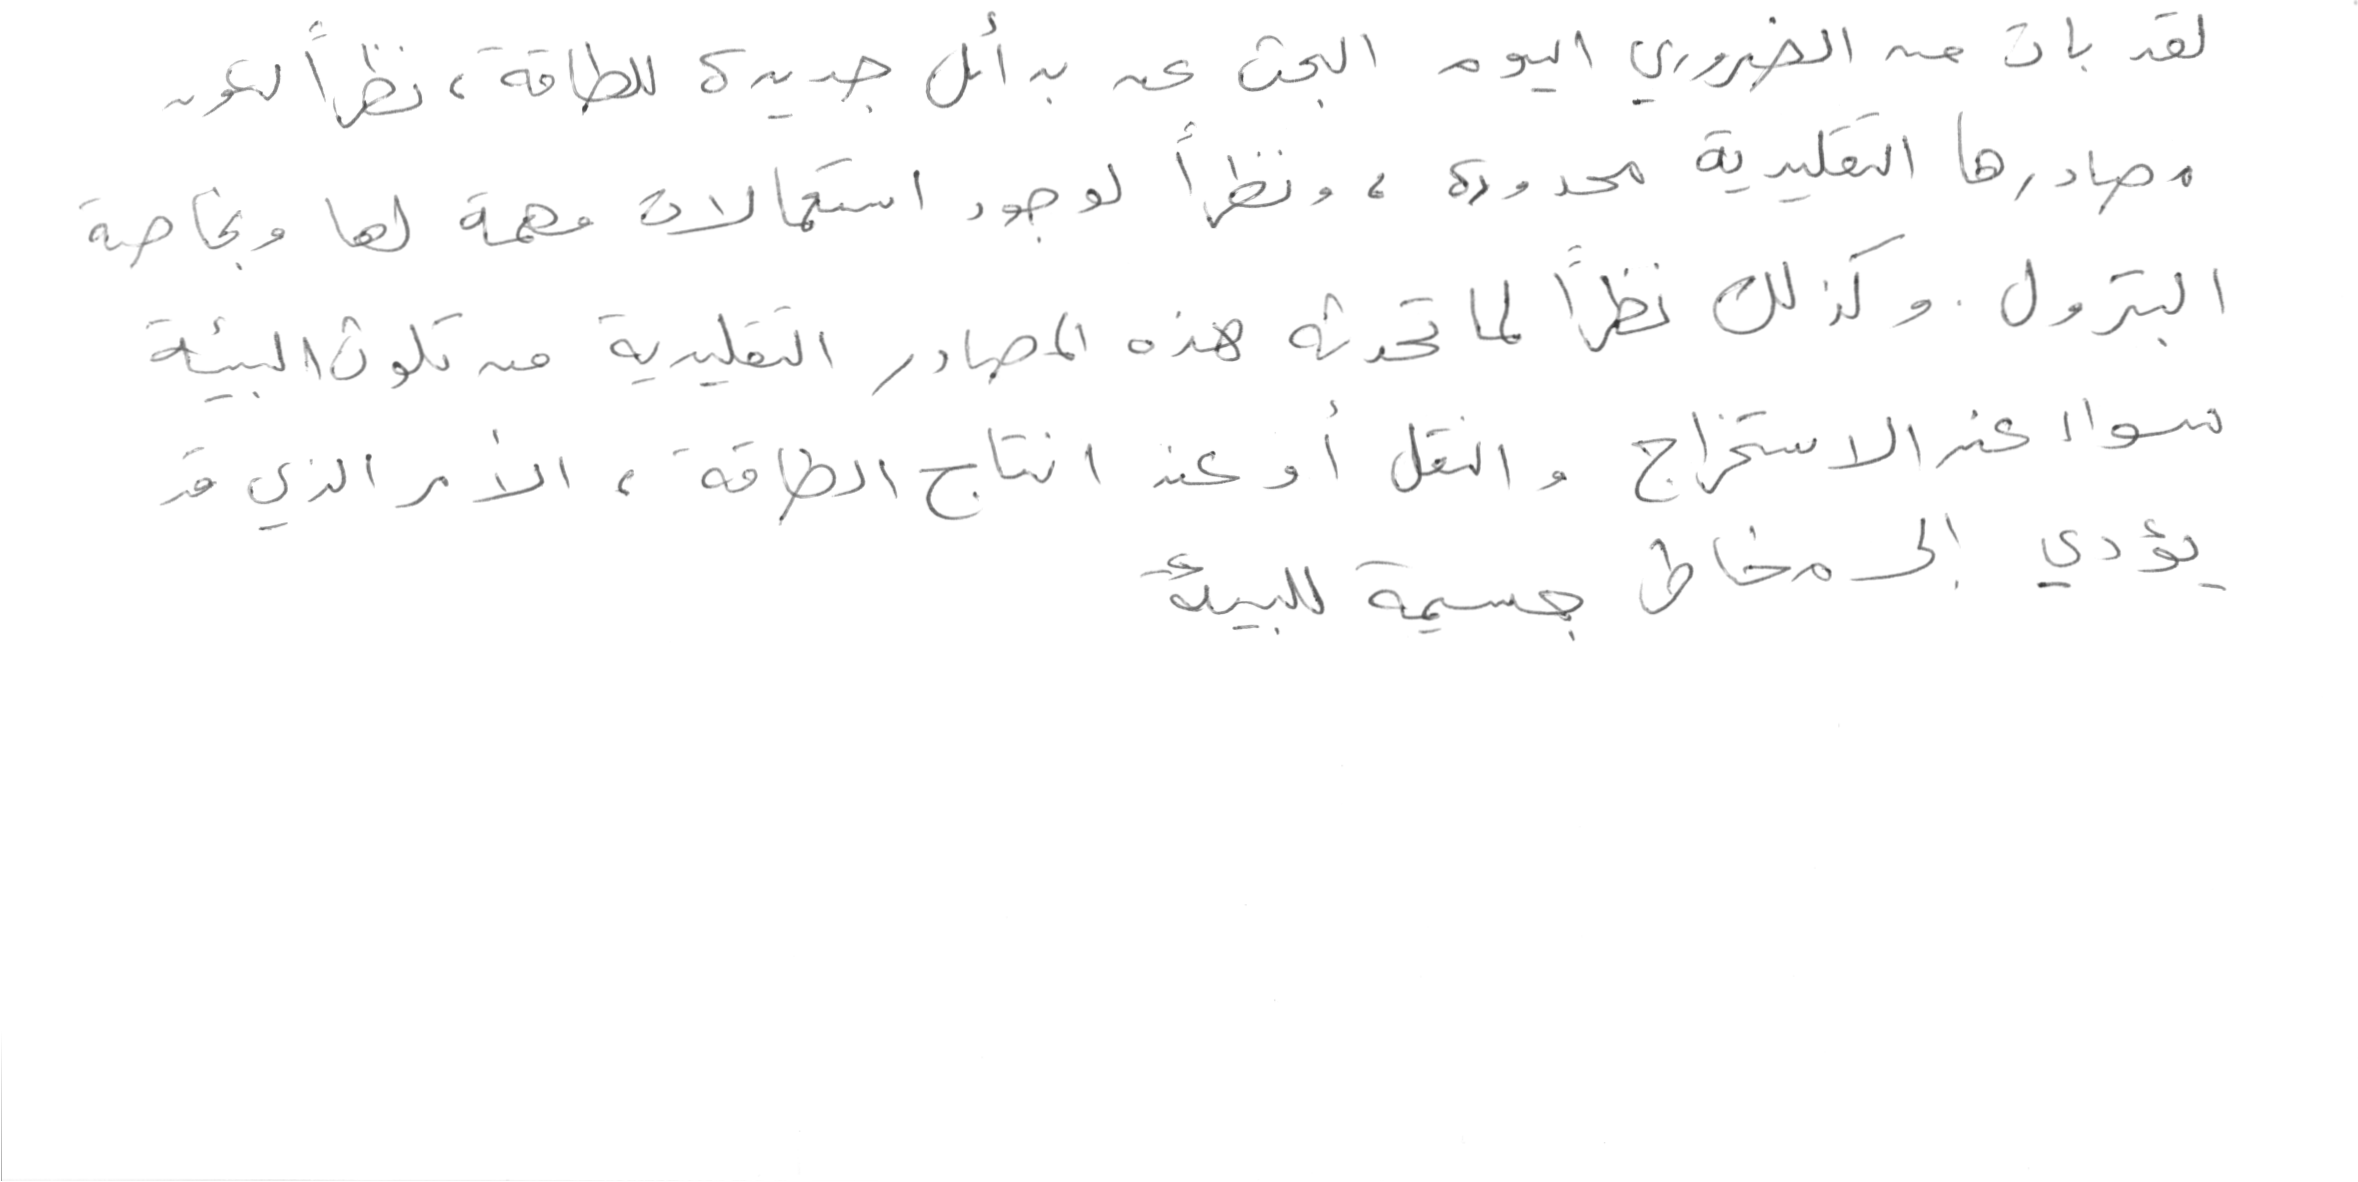 لقد بات من الضروري اليوم البحث عن بدأئل جديدة للطاقة، نظراً لكون
مصادرها التقليدية محدودة، ونظراً لوجود استعمالات مهمة لها وبخاصة
البترول. وكذلك نظراً لما تحدثه هذه المصادر التقليدية من تلوث البيئة
سواء عند الاستخراج والنقل أو عند انتاج الطاقة، الأمر الذي قد
يؤدي إلى مخاطر جسيمة للبيئة